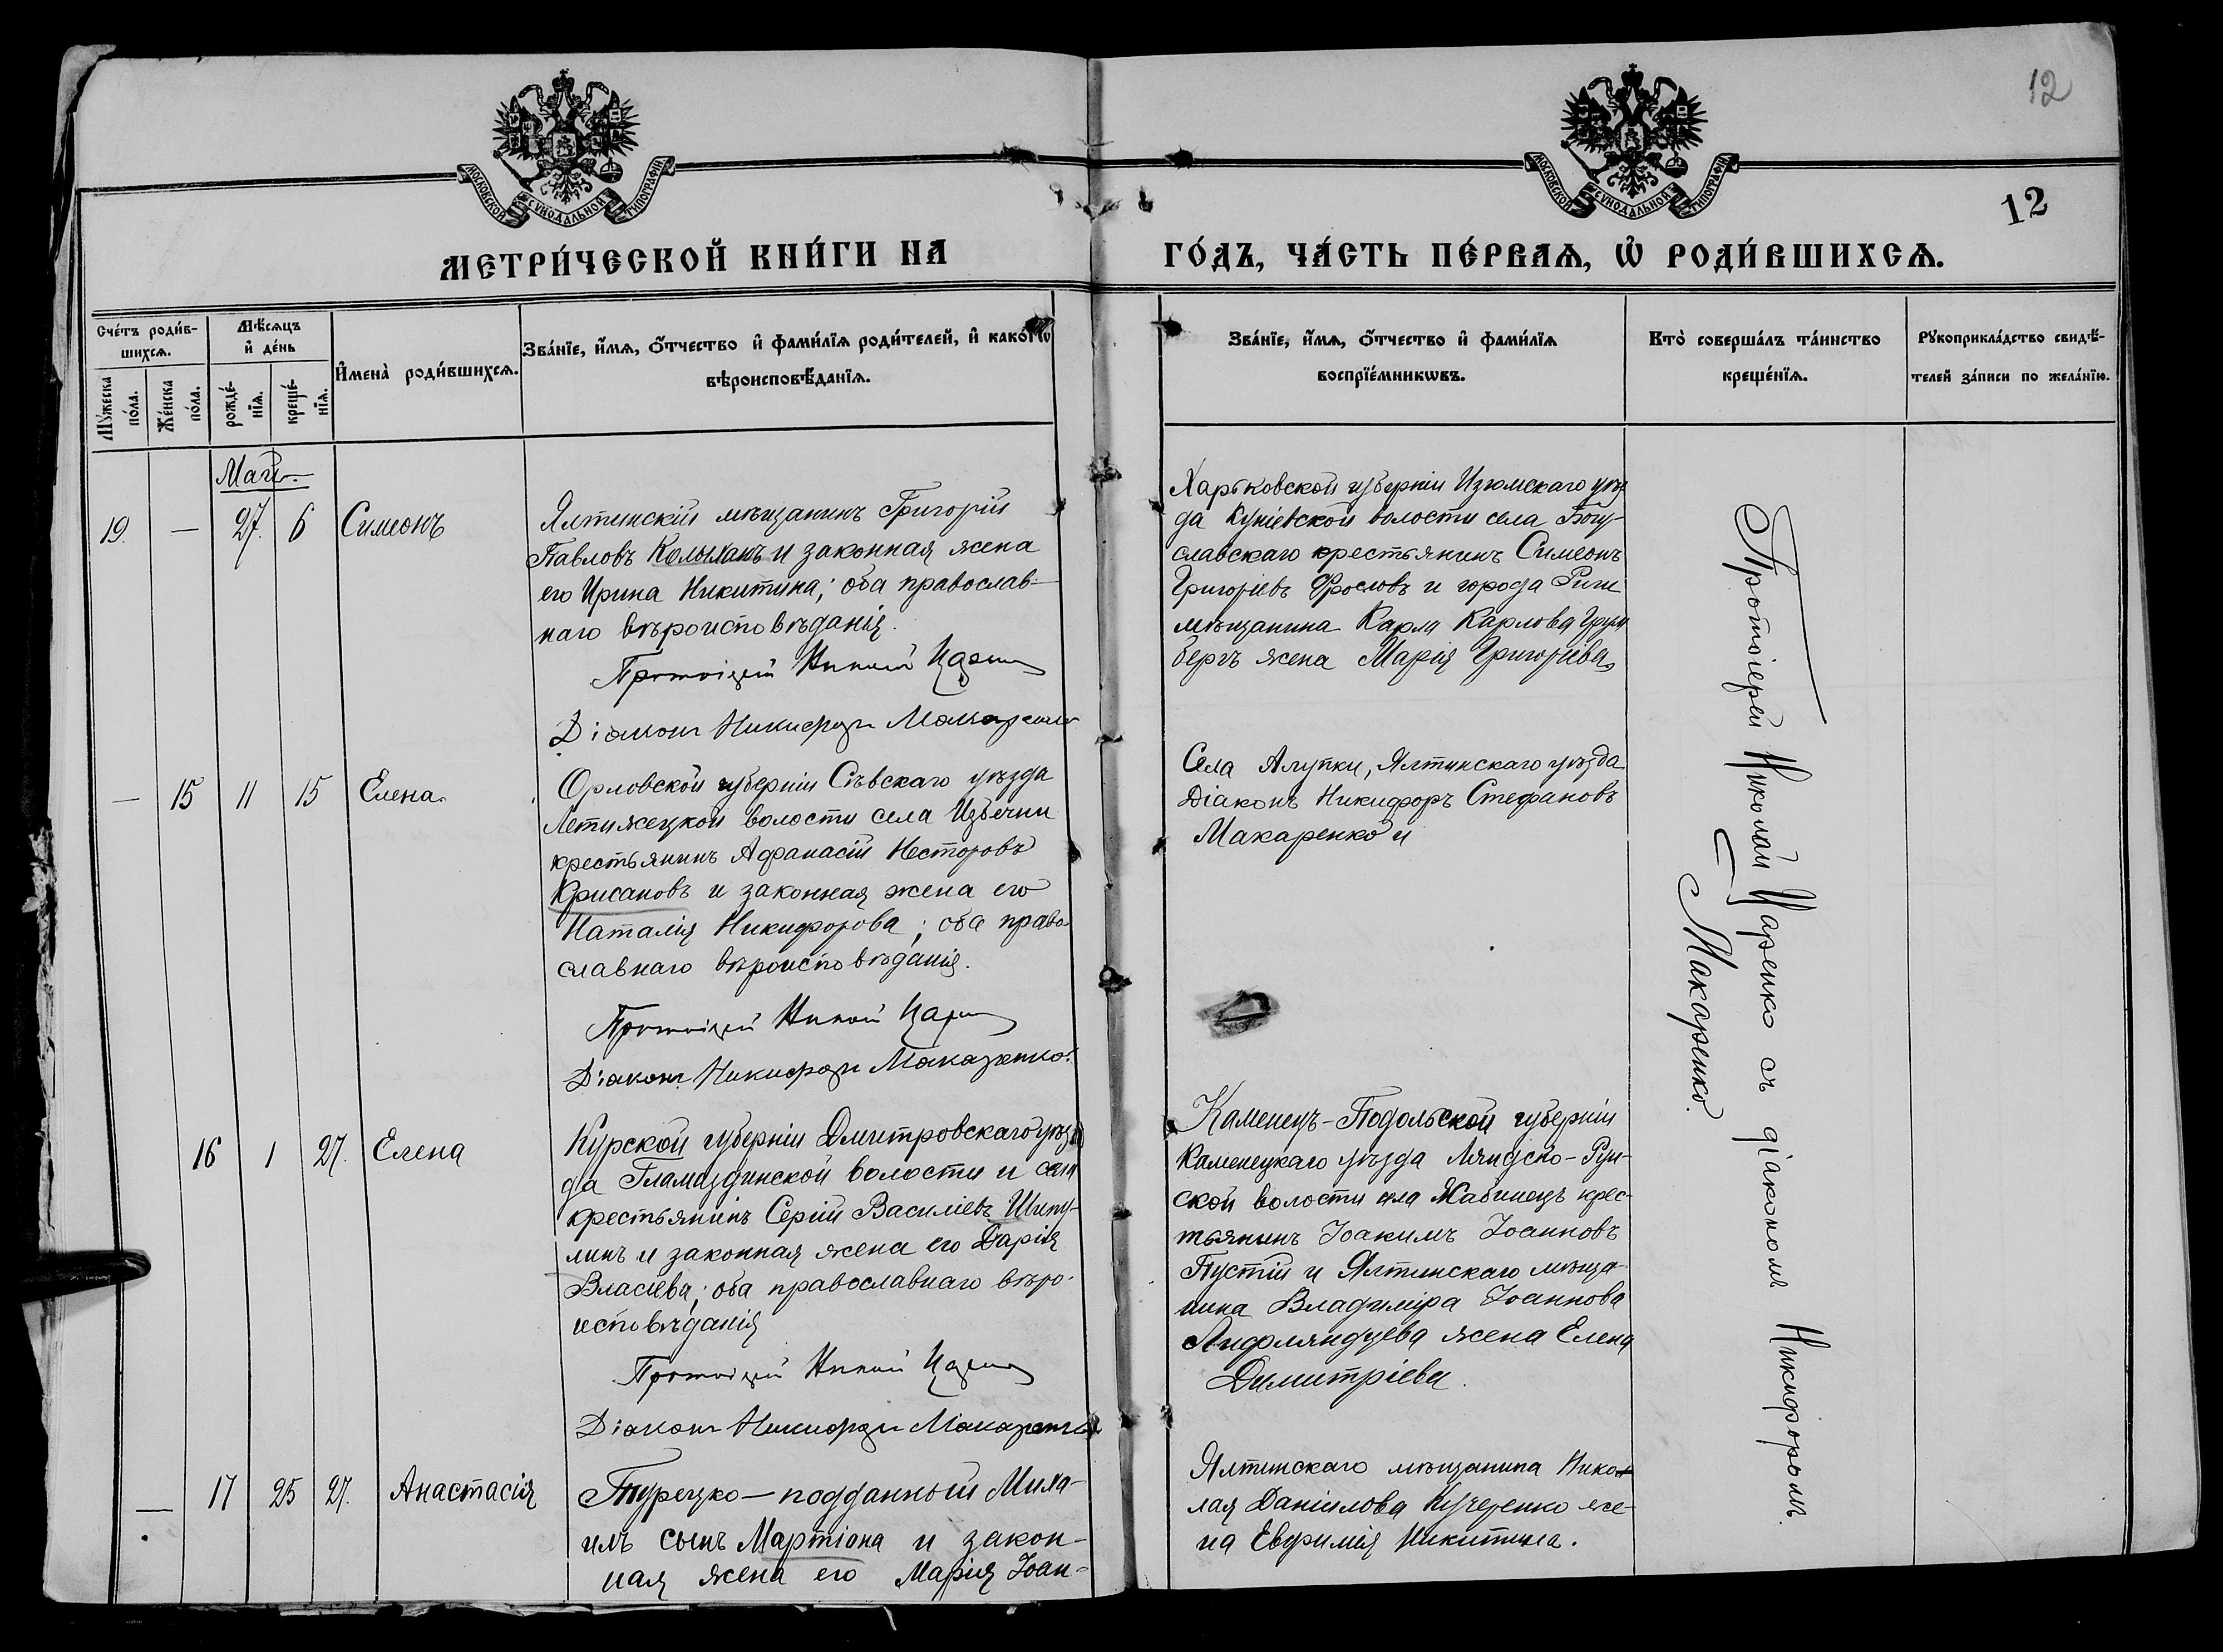 12
МОСКОВСКОЙ СѴНОДАЛЬНОЙ ТИПОГРАФІИ
МОСКОВСКОЙ СѴНОДАЛЬНОЙ ТИПОГРАФІИ
12
МЕТРИ́ЧЕСКОЙ КНИ́ГИ НА
ГО́ДЪ, ЧА́СТЬ ПЕ́РВАѦ, Ѡ҆ РОДИ́ВШИХСѦ.
Сче́тъ роди́в-
шихсѧ.
Мѣ́сѧцъ
и҆ де́нь
Му́жеска
по́ла.
Же́нска
по́ла.
рожде́-
нїѧ.
креще́-
нїѧ.
И҆мена̀ роди́вшихсѧ.
Зва́нїе, и҆́мѧ, ѻ҆́тчество и҆ фами́лїѧ роди́телей, и҆ како́гѡ
вѣроисповѣ́данїѧ.
Зва́нїе, и҆́мѧ, ѻ҆́тчество и҆ фами́лїѧ
воспрїе́мникѡвъ.
Кто̀ соверша́лъ та́инство
креще́нїѧ.
Рꙋкоприкла́дство свидѣ́-
телей за́писи по жела́нїю.
19.
—
27.
6
Симеонъ
Ялтинскій мѣщанинъ Григорій
Павловъ и законная жена
его Ирина Никитина; оба православ-
наго вѣроисповѣданія.
Протоіерей Николай Царенко
Діаконъ Никифоръ Макаренко
Харьковской губерніи Изюмскаго уѣз-
да волости села Богу-
славскаго крестьянинъ Симеонъ
Григоріевъ Фроловъ и города Риги
мѣщанина Карла Карлова
бергъ жена Марія Григоріева
—
15
11
15
Елена
Орловской губерніи Сѣвскаго уѣзда
волости села
крестьянинъ Афанасій Несторовъ
Крисановъ и законная жена его
Наталія Никифорова; оба право-
славнаго вѣроисповѣданія.
Протоіерей Николай Царенко
Діаконъ Никифоръ Макаренко
Села Алупки, Ялтинскаго уѣзда
Діаконъ Никифоръ Стефановъ
Макаренко и
16
1
27.
Елена
Курской губерніи Дмитровскаго уѣз-
да Гламаздинской волости и села
крестьянинъ Сергій Василіевъ Шипу-
линъ и законная жена его Дарія
Власіева; оба православнаго вѣро-
исповѣданія
Протоіерей Николай Царенко
Діаконъ Никифоръ Макаренко
Каменецъ-Подольской губерніи
Каменецкаго уѣзда
ской волости села Жабинецъ крес-
тьянинъ Іоакимъ Іоанновъ
Пустій и Ялтинскаго мѣща-
нина Владиміра Іоаннова
Лифляндцева жена Елена
Димитріева.
—
17
25
27.
Анастасія
Турецко-подданный Миха-
илъ сынъ Мартіона и закон-
ная жена его Марія Іоан-
Ялтинскаго мѣщанина Нико-
лая Даніилова Кучеренко же-
на Евфимія Никитина.
Протоіерей Николай Царенко съ діакономъ Никифоромъ
Макаренко.